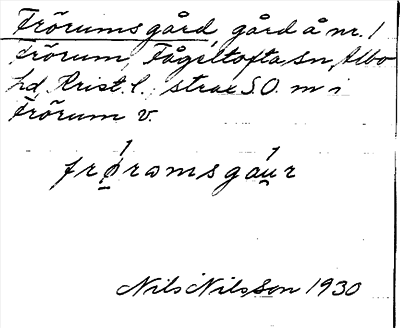 Frörumsgård, gård å nr. 1
Frörum, Fågeltofta sn, Albo
hd, Krist. l., strax S.O. m i
Frörum v.
frø̱rɷmsgau̱r
Nils Nilsson 1930